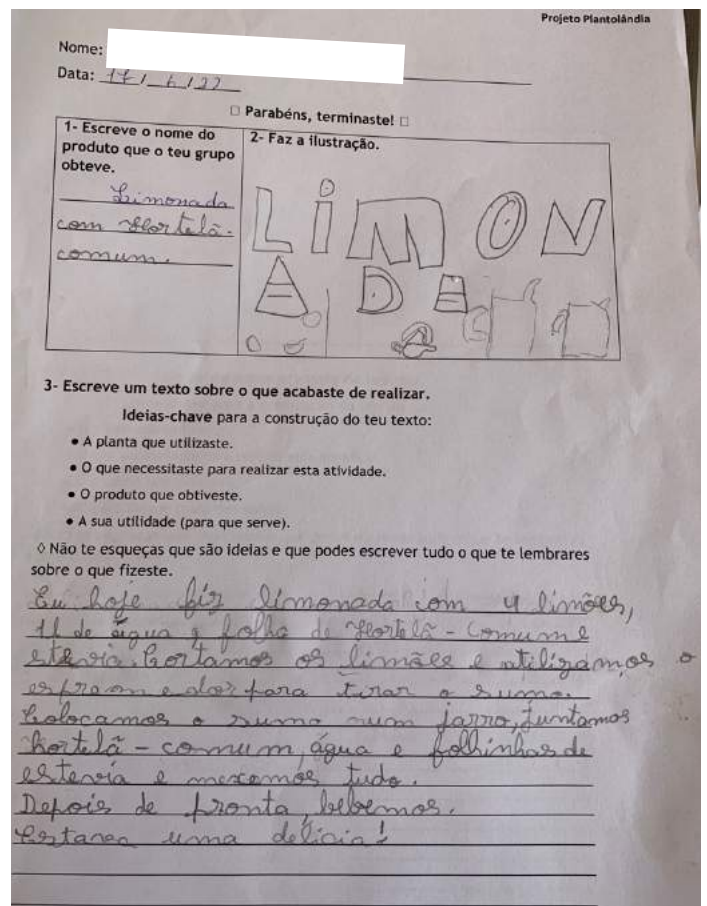 Projeto Plantolândia
Nome:
Data: 17/6/22
□ Parabéns, terminaste! □
1- Escreve o nome do
produto que o teu grupo
obteve.
Limonada
com Hortelã-
comum.
2- Faz a ilustração.
LIMON
ADA
3- Escreve um texto sobre o que acabaste de realizar.
Ideias-chave para a construção do teu texto:
• A planta que utilizaste.
• O que necessitaste para realizar esta atividade.
• O produto que obtiveste.
• A sua utilidade (para que serve).
◊ Não te esqueças que são ideias e que podes escrever tudo o que te lembrares
sobre o que fizeste.
Eu hoje fiz limonada com 4 limões,
1l de água, folha de Hortelã-comum e
estevia. Cortamos os limões e utilizamos o
espremedor para tirar o sumo.
Colocamos o sumo num jarro, juntamos
hortelã-comum, água e folhinhas de
estevia e mexemos tudo.
Depois de pronta, bebemos.
Estava uma delicia!